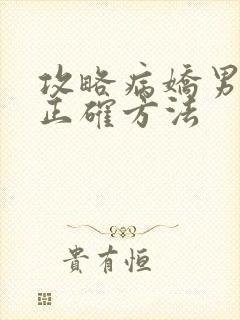 攻略病嬌男
正確方法
貴有恒